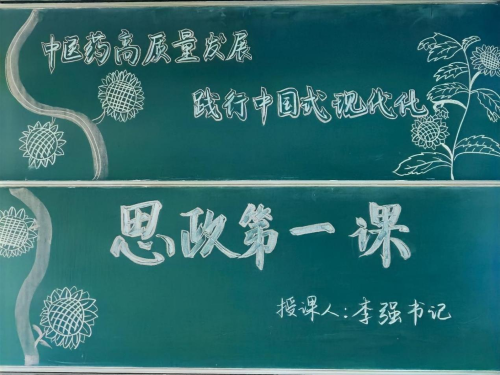 中医药高质量发展
践行中国式现代化
思政第一课
授课人：李强书记